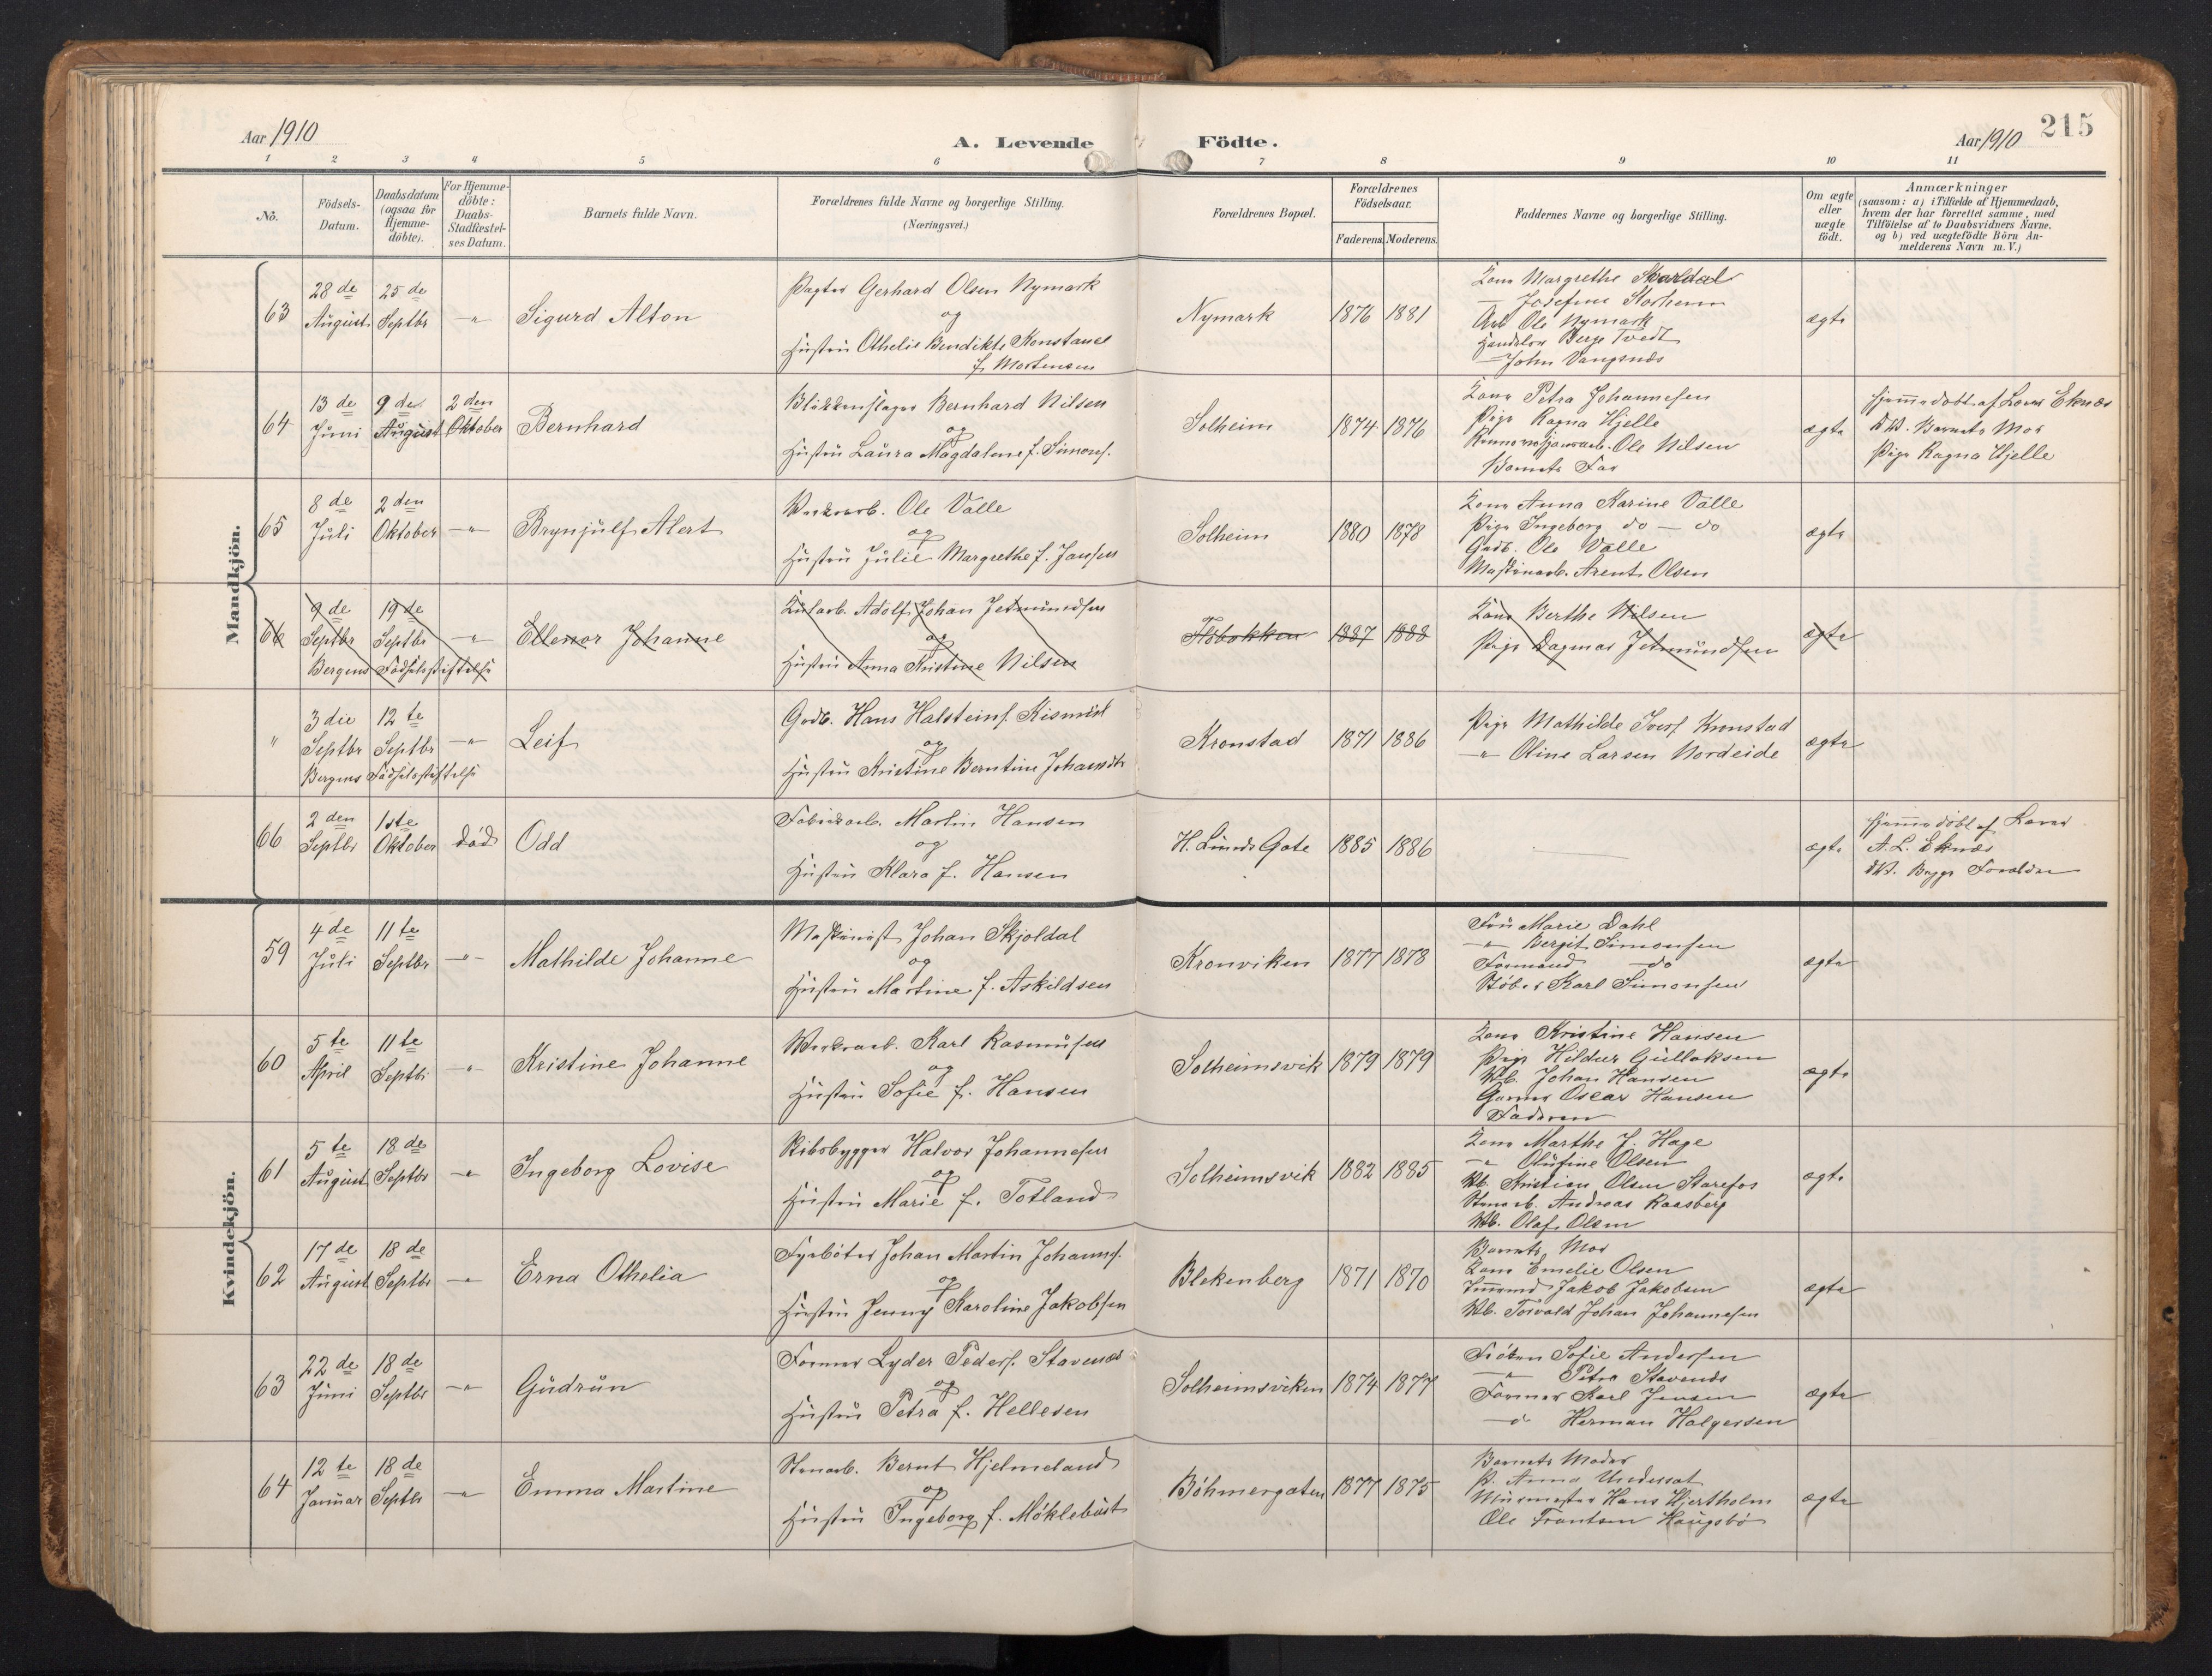 Aar 1910
A. Levende
Födte.
Aar 1910
215
1 2 3 4 5 6 7 8 9 10 11
No.
Födsels-
Datum.
Daabsdatum
(ogsaa for
Hjemme-
döbte).
For Hjemme-
döbte:
Daabs-
Stadfæstel-
ses Datum.
Barnets fulde Navn.
Forældrenes fulde Navne og borgerlige Stilling.
(Næringsvei.)
Forældrenes Bopæl.
Forældrenes
Födselsaar.
Faderens. Moderens.
Faddernes Navne og borgerlige Stilling.
Om ægte
eller
uægte
födt.
Anmærkninger
(saasom: a) i Tilfælde af Hjemmedaab,
hvem der har forrettet samme, med
Tilföielse af to Daabsvidners Navne.
og b) ved uægtefödte Börn An-
melderens Navn m. V.)
Mandkjön.
63
28 de
August
25 de
Septbr
-"-
Sigurd Alton
Gerhard Olsen Nymark
og
Hustru Othelie Bendikte Konstance
f. Mortensen
Nymark
1876 1881
Kone Margrethe Skaldal
Josefine Storheim
Arb Ole Nymark
Berge Tvedt
John Vangsnes
ægte
64
13 de
Juni
9 de
August
2 den
Oktober
Bernhard
Blikkenslager Bernhard Nilsen
og
Hustru Laura Magdalene f. Simons.
Solheim
1874 1876
Kone Petra Johannesen
Pige Ragna Hjelle
Ole Nilsen
Barnets Far
ægte
Hjemmedøbt af Lærer Eknæs
D.V. Barnets Mor
Pige Ragna Hjelle
65
8 de
Juli
2 den
Oktober
-"-
Brynjulf Alert
Verksarb. Ole Valle
og
Hustru Julie Margrethe f. Jansen
Solheim
1880 1878
Kone Anna Karine Valle
Pige Ingeborg do - do
Gdb. Ole Valle
Maskinarb. Arent Olsen
ægte
66
9 de
Septbr
19 de
Septbr
-"-
Bergens Fødselsstiftelse
Ellenor Johanne
Adolf Johan Jetmundsen
og
Hustru Anna Kristine Nilsen
1887 1888
Kone Berthe Nilsen
Pige Dagmar Jetmundsen
ægte
"
3 die
Septbr
12 te
Septbr
-"-
Bergens Fødselsstiftelse
Leif
Hans Halsteins. Rismul
og
Hustru Kristine Berntine Johansdtr
Kronstad
1871 1886
Pige Mathilde Kronstad
-"- Oline Larsen Nordeide
ægte
66
2 den
Septbr
1ste
Oktober
død
Odd
Fabrikarb. Martin Hansen
og
Hustru Klara f. Hansen
H. Lunds Gate
1885 1886
ægte
Hjemmedøbt af Lærer
A. L. Eknæs
D.V. Begge Forældre
Kvindekjön.
59
4 de
Juli
11 te
Septbr
-"-
Mathilde Johanne
Maskinist Johan Skjoldal
og
Hustru Martine f. Askildsen
Kronviken
1877 1878
Fru Marie Dahl
-"- Bergit Simonsen
Formand -do
Støber Karl Simonsen
ægte
60
5 te
April
11 te
Septbr
-"-
Kristine Johanne
Verksarb. Karl Rasmussen
og
Hustru Sofie f. Hansen
Solheimsvik
1879 1879
Kone Kristine Hansen
Pige Hildur Gullaksen
Vb. Johan Hansen
Oscar Hansen
Faderen
ægte
61
5 te
August
18 de
Septbr
-"-
Ingeborg Lovise
Skibsbygger Halvor Johannesen
og
Hustru Marie f. Totland
Solheimsvik
1882 1885
Kone Marthe J. Hage
-"- Olufine Olsen
Vb. Kristian Olsen Storefos
Stenarb. Andreas Raasberg
Vb. Olaf Olsen
ægte
62
17 de
August
18 de
Septbr
-"-
Erna Othelia
Fyrbøter Johan Martin Johanns.
og
Hustru Jenny Karoline Jakobsen
Blekenberg
1871 1870
Barnets Mor
Kone Emelie Olsen
Jakob Jakobsen
Vb. Torvald Johan Johannesen
ægte
63
22 de
Juni
18 de
Septbr
-"-
Gudrun
Former Lyder Peders. Stavenes
og
Hustru Petra f. Hellesen
Solheimsviken
1874 1877
Frøken Sofie Andersen
-"- Petra Stavenes
Former Karl Jensen
Herman Holgersen
ægte
64
12 te
Januar
18 de
Septbr
-"-
Emma Martine
Stenarb. Bernt Hjelmeland
og
Hustru Ingeborg f. Møklebust
Böhmergaten
1877 1875
Barnets Moder
P. Anna Undersat
Murmester Hans Hjertholm
Ole Frantsen Haugsbø
ægte